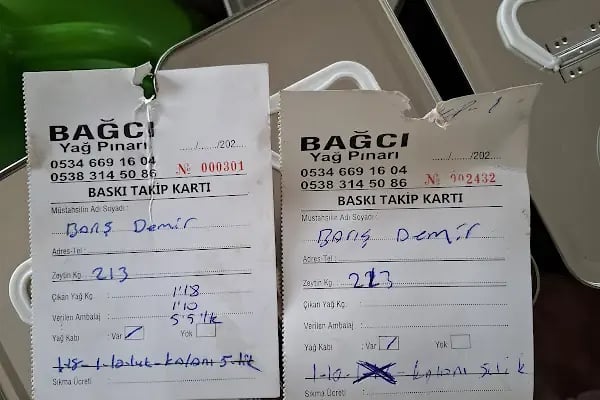 BAĞCI
Yağ Pınarı
0534 669 16 04
0538 314 50 86
....../....../202....
№ 000301
BASKI TAKİP KARTI
Müstahsilin Adı Soyadı :
Barış Demir
Adres-Tel :
Zeytin Kg. : 213
Çıkan Yağ Kg. : 1'18
1'10
Verilen Ambalaj : 5'5 lik
Yağ Kabı : Var Yok
1-18 - 1-10 kalanı 5 lik
Sıkma Ücreti :
BAĞCI
Yağ Pınarı
0534 669 16 04
0538 314 50 86
....../....../202....
№ 002432
BASKI TAKİP KARTI
Müstahsilin Adı Soyadı :
Barış Demir
Adres-Tel :
Zeytin Kg. : 213
Çıkan Yağ Kg. :
Verilen Ambalaj :
Yağ Kabı : Var Yok
1-10 - kalanı 5 lik
Sıkma Ücreti